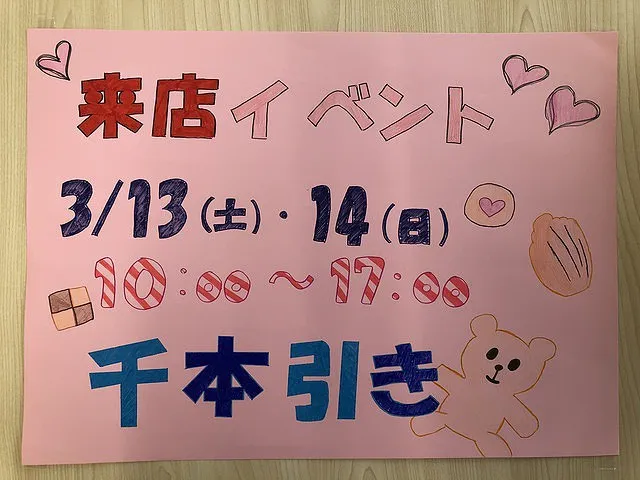 来店イベント
3/13(土)・14(日)
10:00～17:00
千本引き